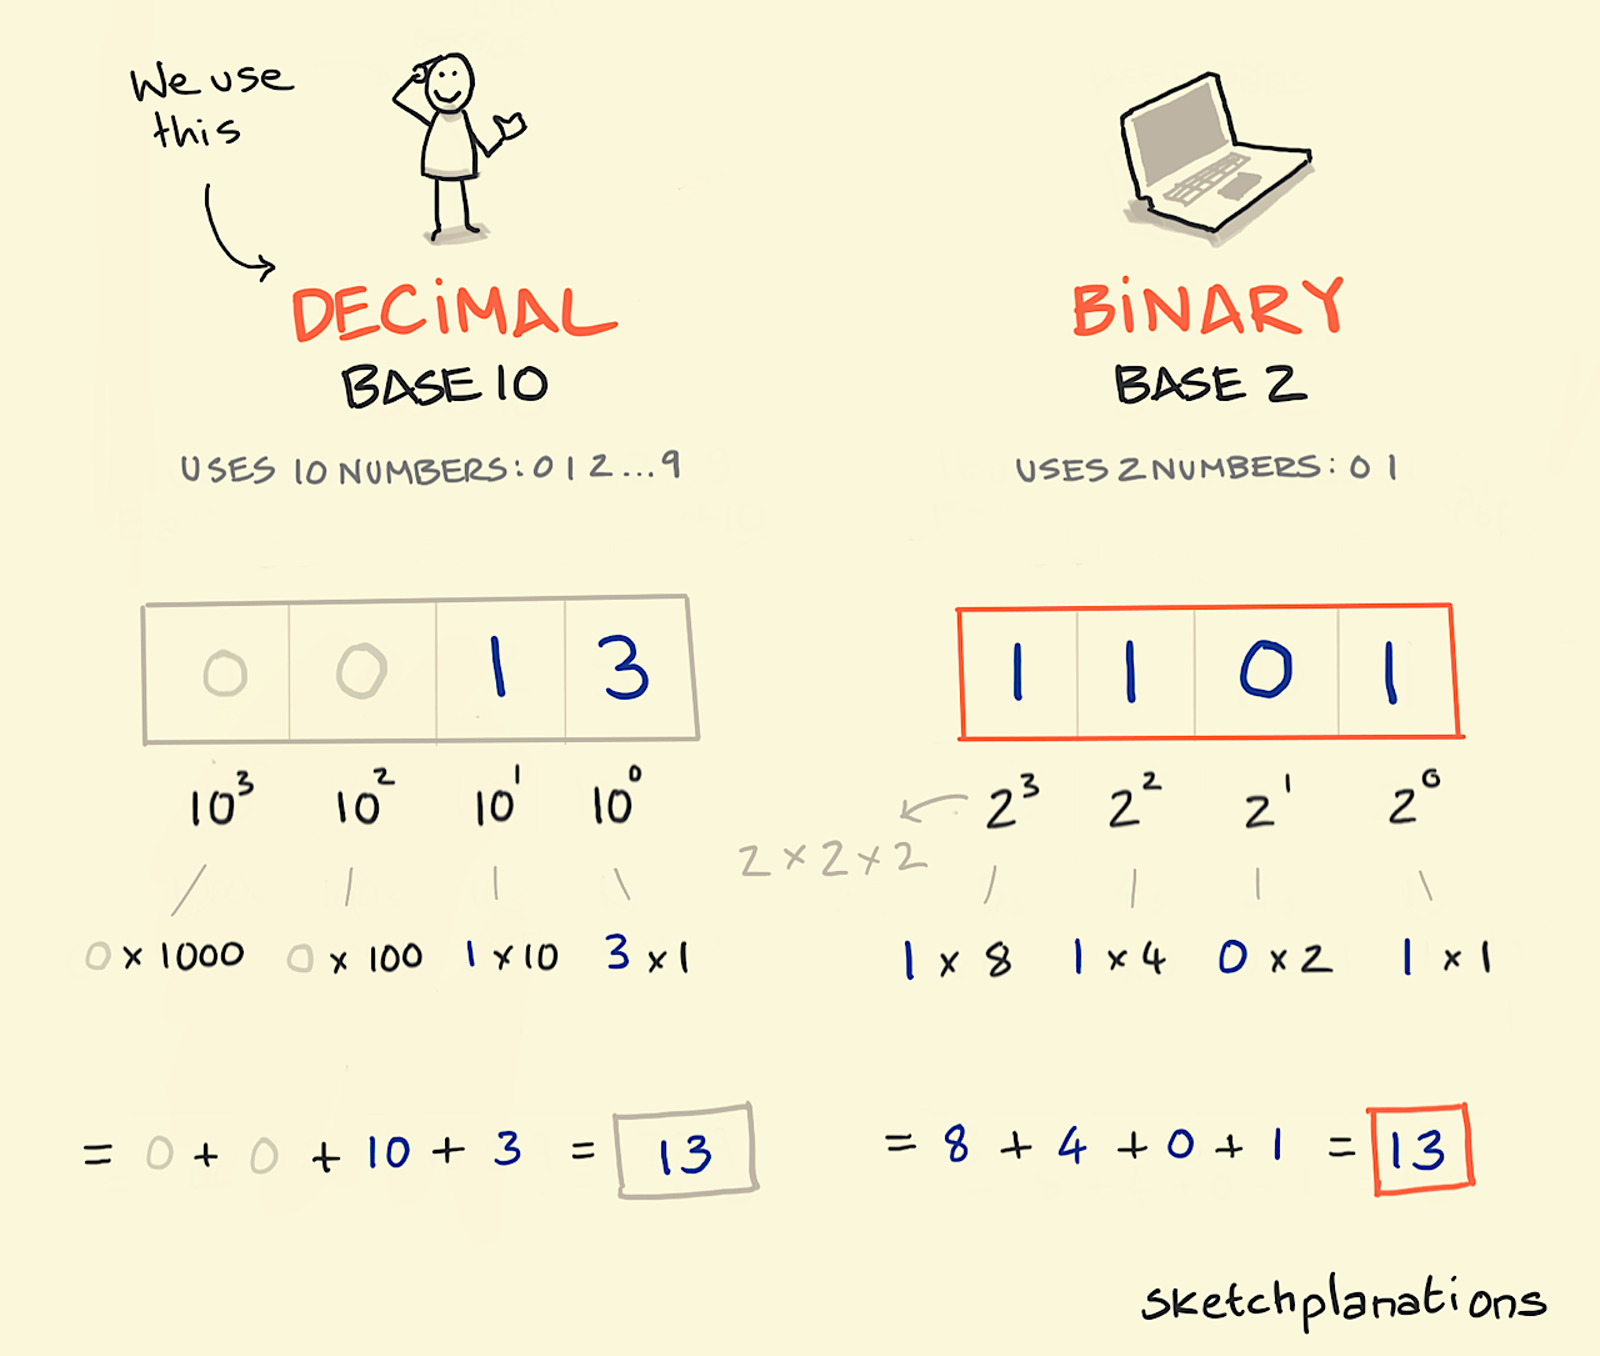 We use
this
DECiMAL
BASE 10
USES 10 NUMBERS: 0 1 2 ... 9
0 0 1 3
10³ 10² 10¹ 10⁰
0 x 1000 0 x 100 1 x 10 3 x 1
= 0 + 0 + 10 + 3 = 13
BiNARY
BASE 2
USES 2 NUMBERS: 0 1
1 1 0 1
2³ 2² 2¹ 2⁰
2 x 2 x 2
1 x 8 1 x 4 0 x 2 1 x 1
= 8 + 4 + 0 + 1 = 13
sketchplanations